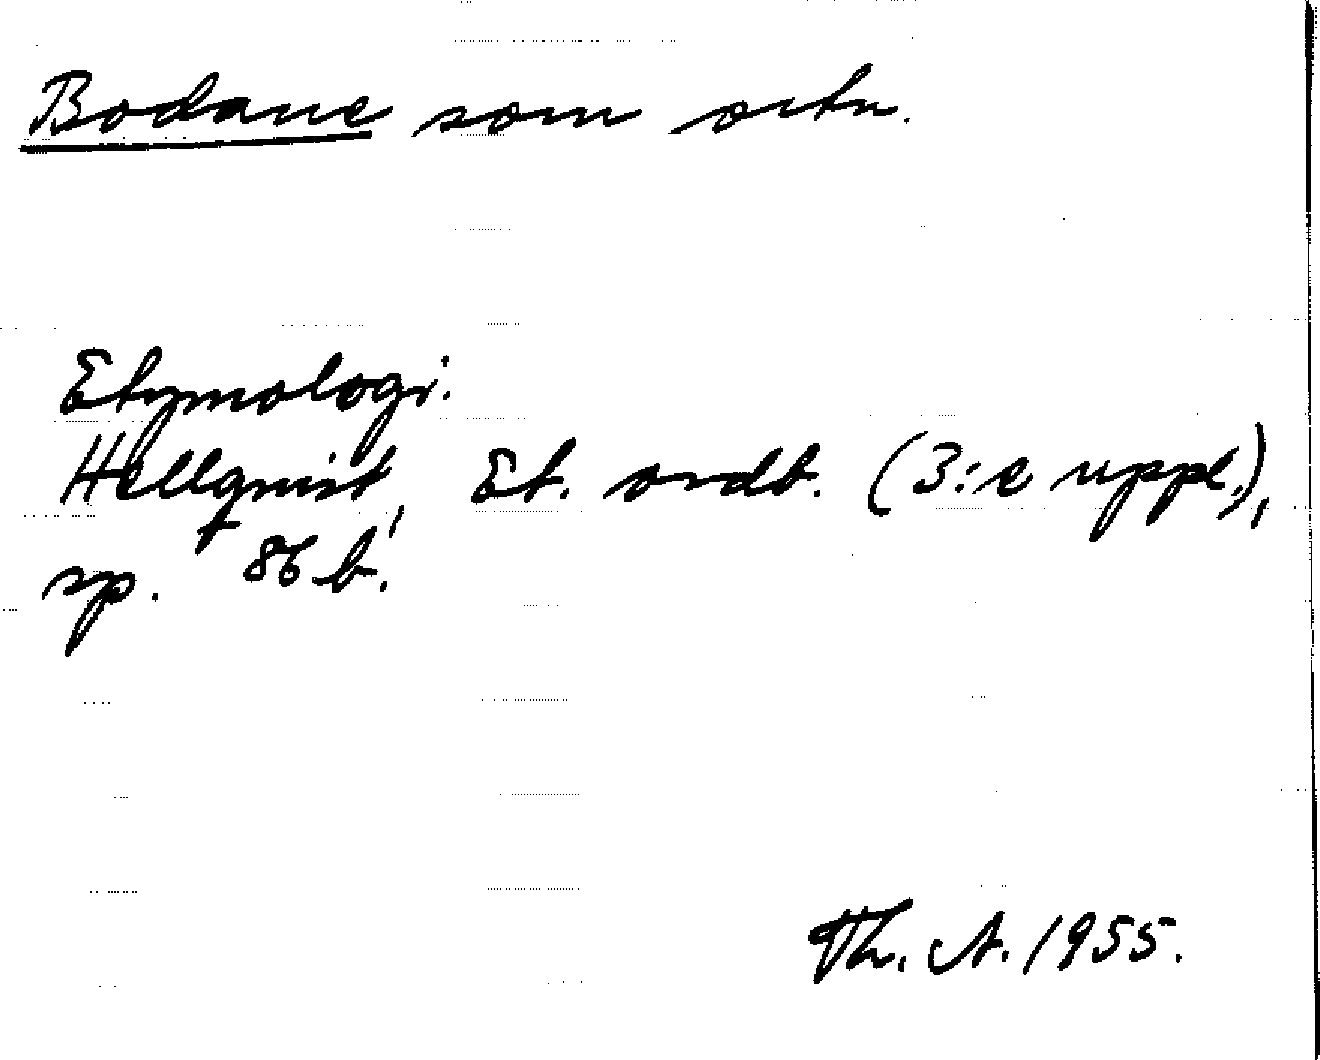 Bodane som ortn.
Etymologi.
Hellquist, Et. ordb. (3:e uppl.),
sp. 86 b.
Th. A. 1955.